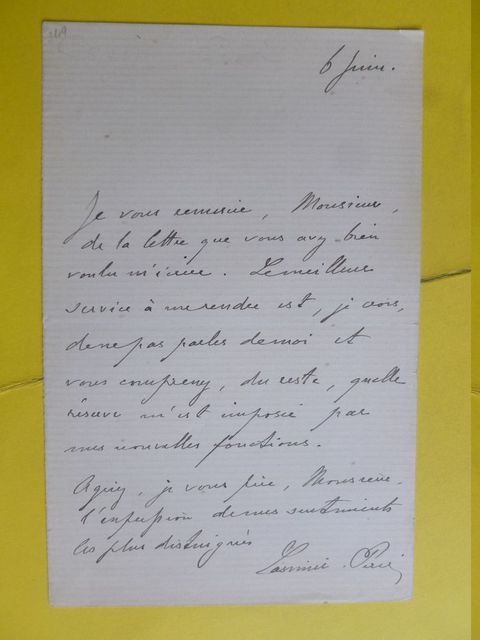 6 Juin.
Je vous remercie, Monsieur,
de la lettre que vous avez bien
voulu m'écrire. Le meilleur
service à me rendre est, je crois,
de ne pas parler de moi et
vous comprenez, du reste, quelle
réserve m'est imposée par
mes nouvelles fonctions.
Agréez, je vous prie, Monsieur,
l'expression de mes sentiments
les plus distingués
Casimir-Perier